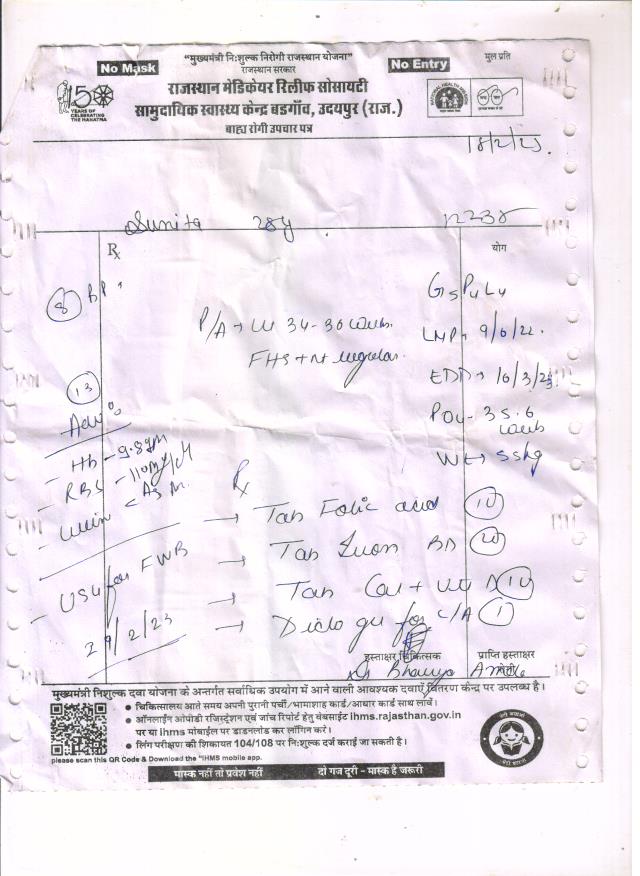 "मुख्यमंत्री निःशुल्क निरोगी राजस्थान योजना"
मुल प्रति
No Mask
राजस्थान सरकार
No Entry
राजस्थान मेडिकेयर रिलीफ सोसायटी
सामुदायिक स्वास्थ्य केन्द्र बडगाँव, उदयपुर (राज.)
बाह्य रोगी उपचार पत्र
150
YEARS OF
CELEBRATING
THE MAHATMA
NATIONAL HEALTH MISSION
18/2/23.
Sunita 28y
Rx
योग
8 BP
G5P4L4
P/A → 34-36 weeks.
LMP → 9/6/22.
FHS + regular
EDD → 16/3/23
13
Adv
POG - 35.6
weeks
Hb - 9.8gm
RBS - 110mg/dl
Wt → 55kg
Urine <
Rx
→ Tab Folic acid 10
USG for FWB
→ Tab Iron BD 20
→ Tab Cal + 10
→ Diclo gel for L/A 1
हस्ताक्षर चिकित्सक
प्राप्ति हस्ताक्षर
मुख्यमंत्री निशुल्क दवा योजना के अन्तर्गत सर्वाधिक उपयोग में आने वाली आवश्यक दवाएँ वितरण केन्द्र पर उपलब्ध है।
• चिकित्सालय आते समय अपनी पुरानी पर्ची/भामाशाह कार्ड/आधार कार्ड साथ लावें।
• ऑनलाईन ओपीडी रजिस्ट्रेशन एवं जांच रिपोर्ट हेतु वेबसाईट ihms.rajasthan.gov.in
पर या ihms मोबाईल पर डाउनलोड कर लॉगिन करें।
• लिंग परीक्षण की शिकायत 104/108 पर निःशुल्क दर्ज कराई जा सकती है।
please scan this QR Code & Download the "IHMS mobile app.
मास्क नहीं तो प्रवेश नहीं
दो गज दूरी - मास्क है जरूरी